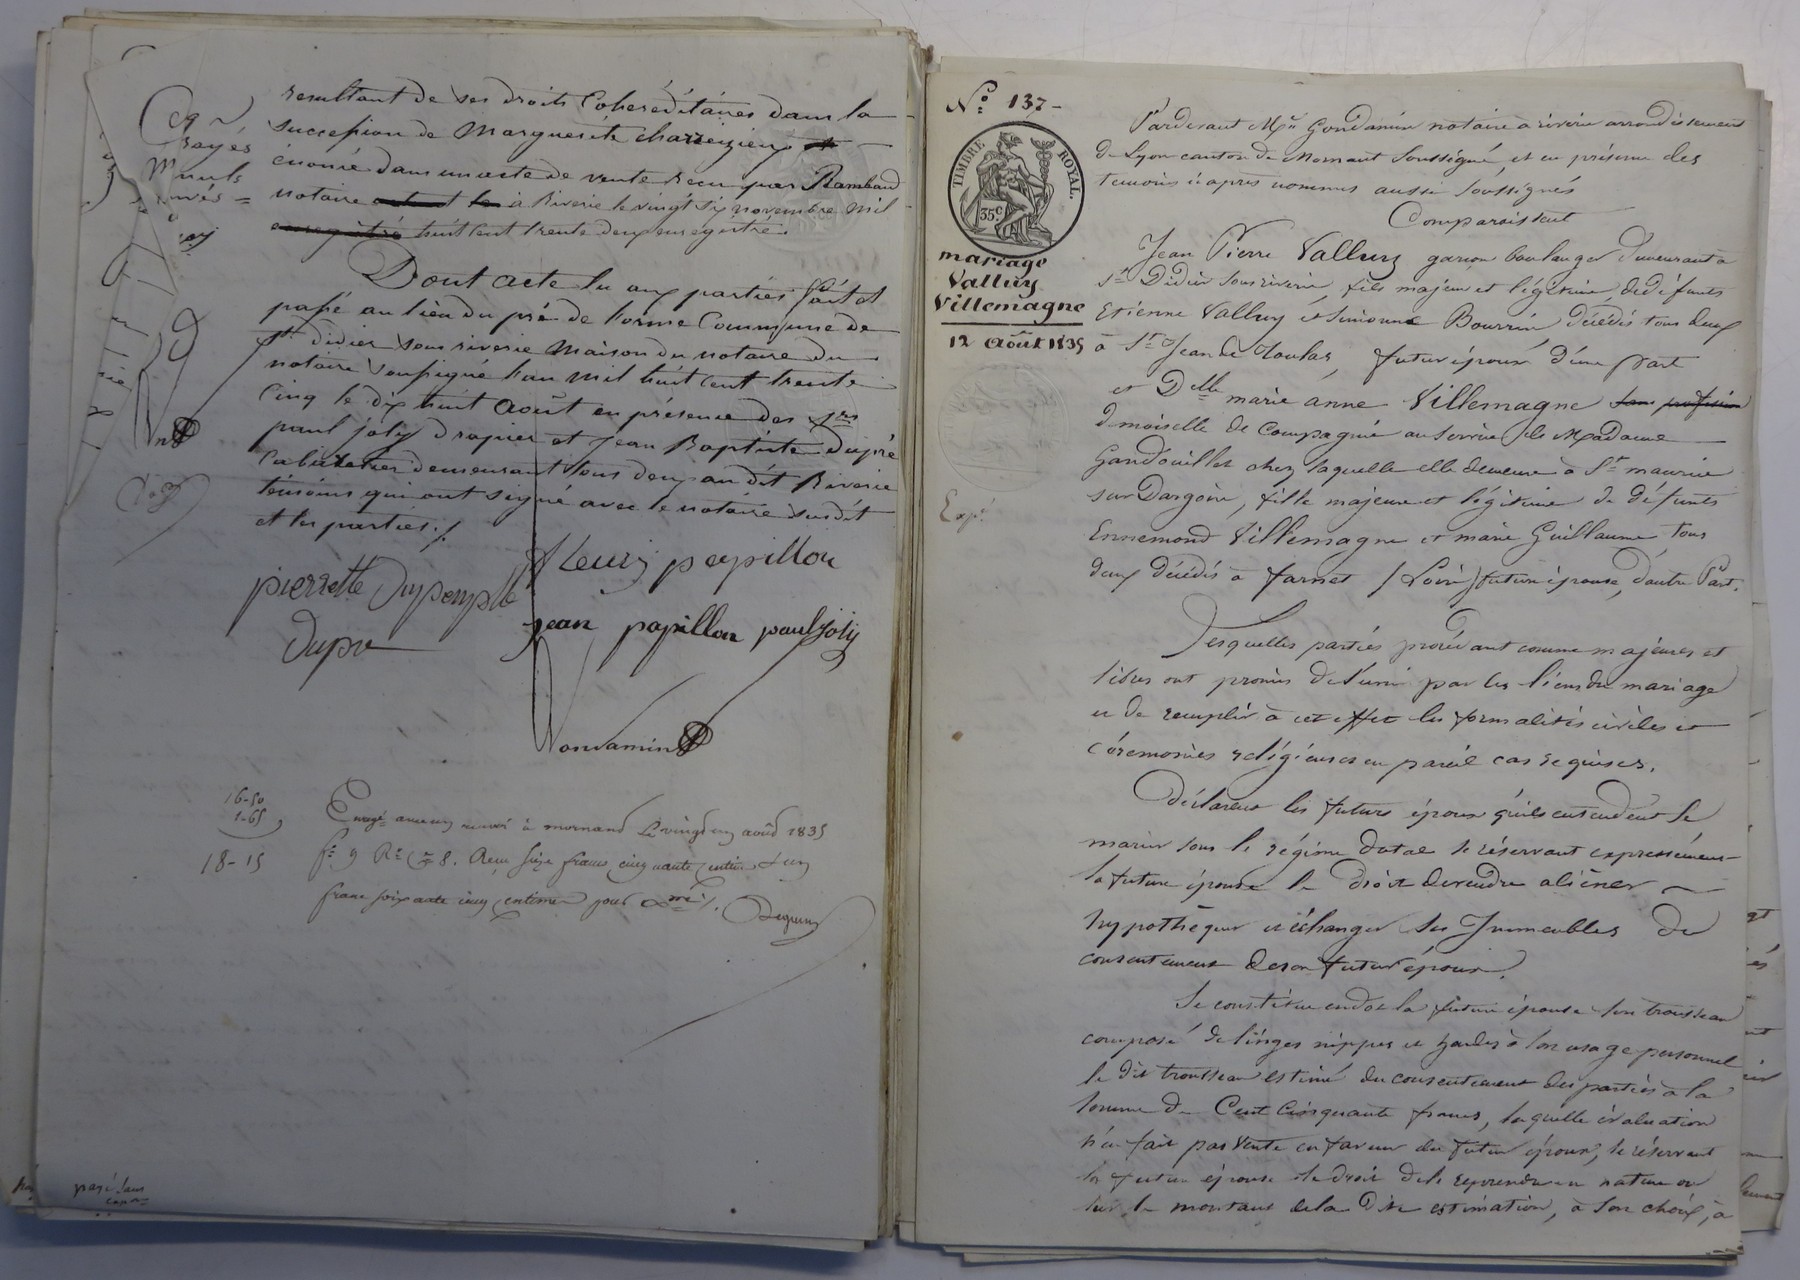 resultant de ses droits Cohereditaires dans la
succession de Marguerite charreizieux
énoncé dans un acte de vente recu par Rambaud
notaire à Riverie le vingt six novembre mil
huit cent trente deux enregistré.
Dont acte lu aux parties fait et
passé au lieu du pré de Lorme Commune de
St didier sous riverie maison du notaire du
notaire soussigné l'an mil huit cent trente
cinq le dix huit Août en présence des srs
paul joly drapier et Jean Baptiste dupré
Cabaretier demeurant tous deux au dit Riverie
témoins qui ont signé avec le notaire susdit
et les parties ./.
fleury papillon
pierrette Dupeuple
jean papillon paul joly
dupre
Gondamin
16-50
1-65
18-15
Enregé à mornand le vingt deux août 1835
fo 9 Ro Ce 8. Reçu seize francs cinquante centimes & un
franc soixante cinq centimes pour Dme ./.
No 137-
TIMBRE ROYAL.
35c
mariage
Valluy
Villemagne
12 Août 1835
Expé
Pardevant Me Gondamin notaire à riverie arrondissement
de Lyon canton de Mornant Soussigné, et en présence des
temoins ci après nommés aussi Soussignés
Comparaissent
Jean Pierre Valluy garçon boulanger demeurant à
St Didier sous riverie, fils majeur et légitime de défunts
Etienne Valluy et Simonne Bourrin, décédés tous deux
à St Jean de Toulas, futur époux d'une part
et Delle marie anne Villemagne sans profession
demoiselle de compagnie au Service de Madame
Gandouillet chez laquelle elle demeure à St maurice
sur Dargoire, fille majeure et légitime de défunts
Ennemond Villemagne et marie Guillaume tous
deux décédés à farnet (Loire) future épouse, d'autre Part.
Lesquelles parties procédant comme majeures et
libres ont promis de s'unir par les liens du mariage
et de remplir à cet effet les formalités civiles et
cérémonies religieuses en pareil cas requises.
Déclarent les futurs époux qu'ils entendent se
marier sous le régime dotal se réservant expressément
la future épouse le droit de vendre aliéner
hypothéquer et échanger ses Immeubles du
consentement de son futur époux.
Se constitue en dot la future épouse son trousseau
composé de linges nippes et hardes à son usage personnel
le dit trousseau estimé du consentement des parties à la
somme de Cent cinquante francs, laquelle évaluation
n'en fait pas vente en faveur du futur époux, se réservant
la future épouse le droit de le reprendre en nature ou
sur le montant de la Dite estimation, à son choix, à